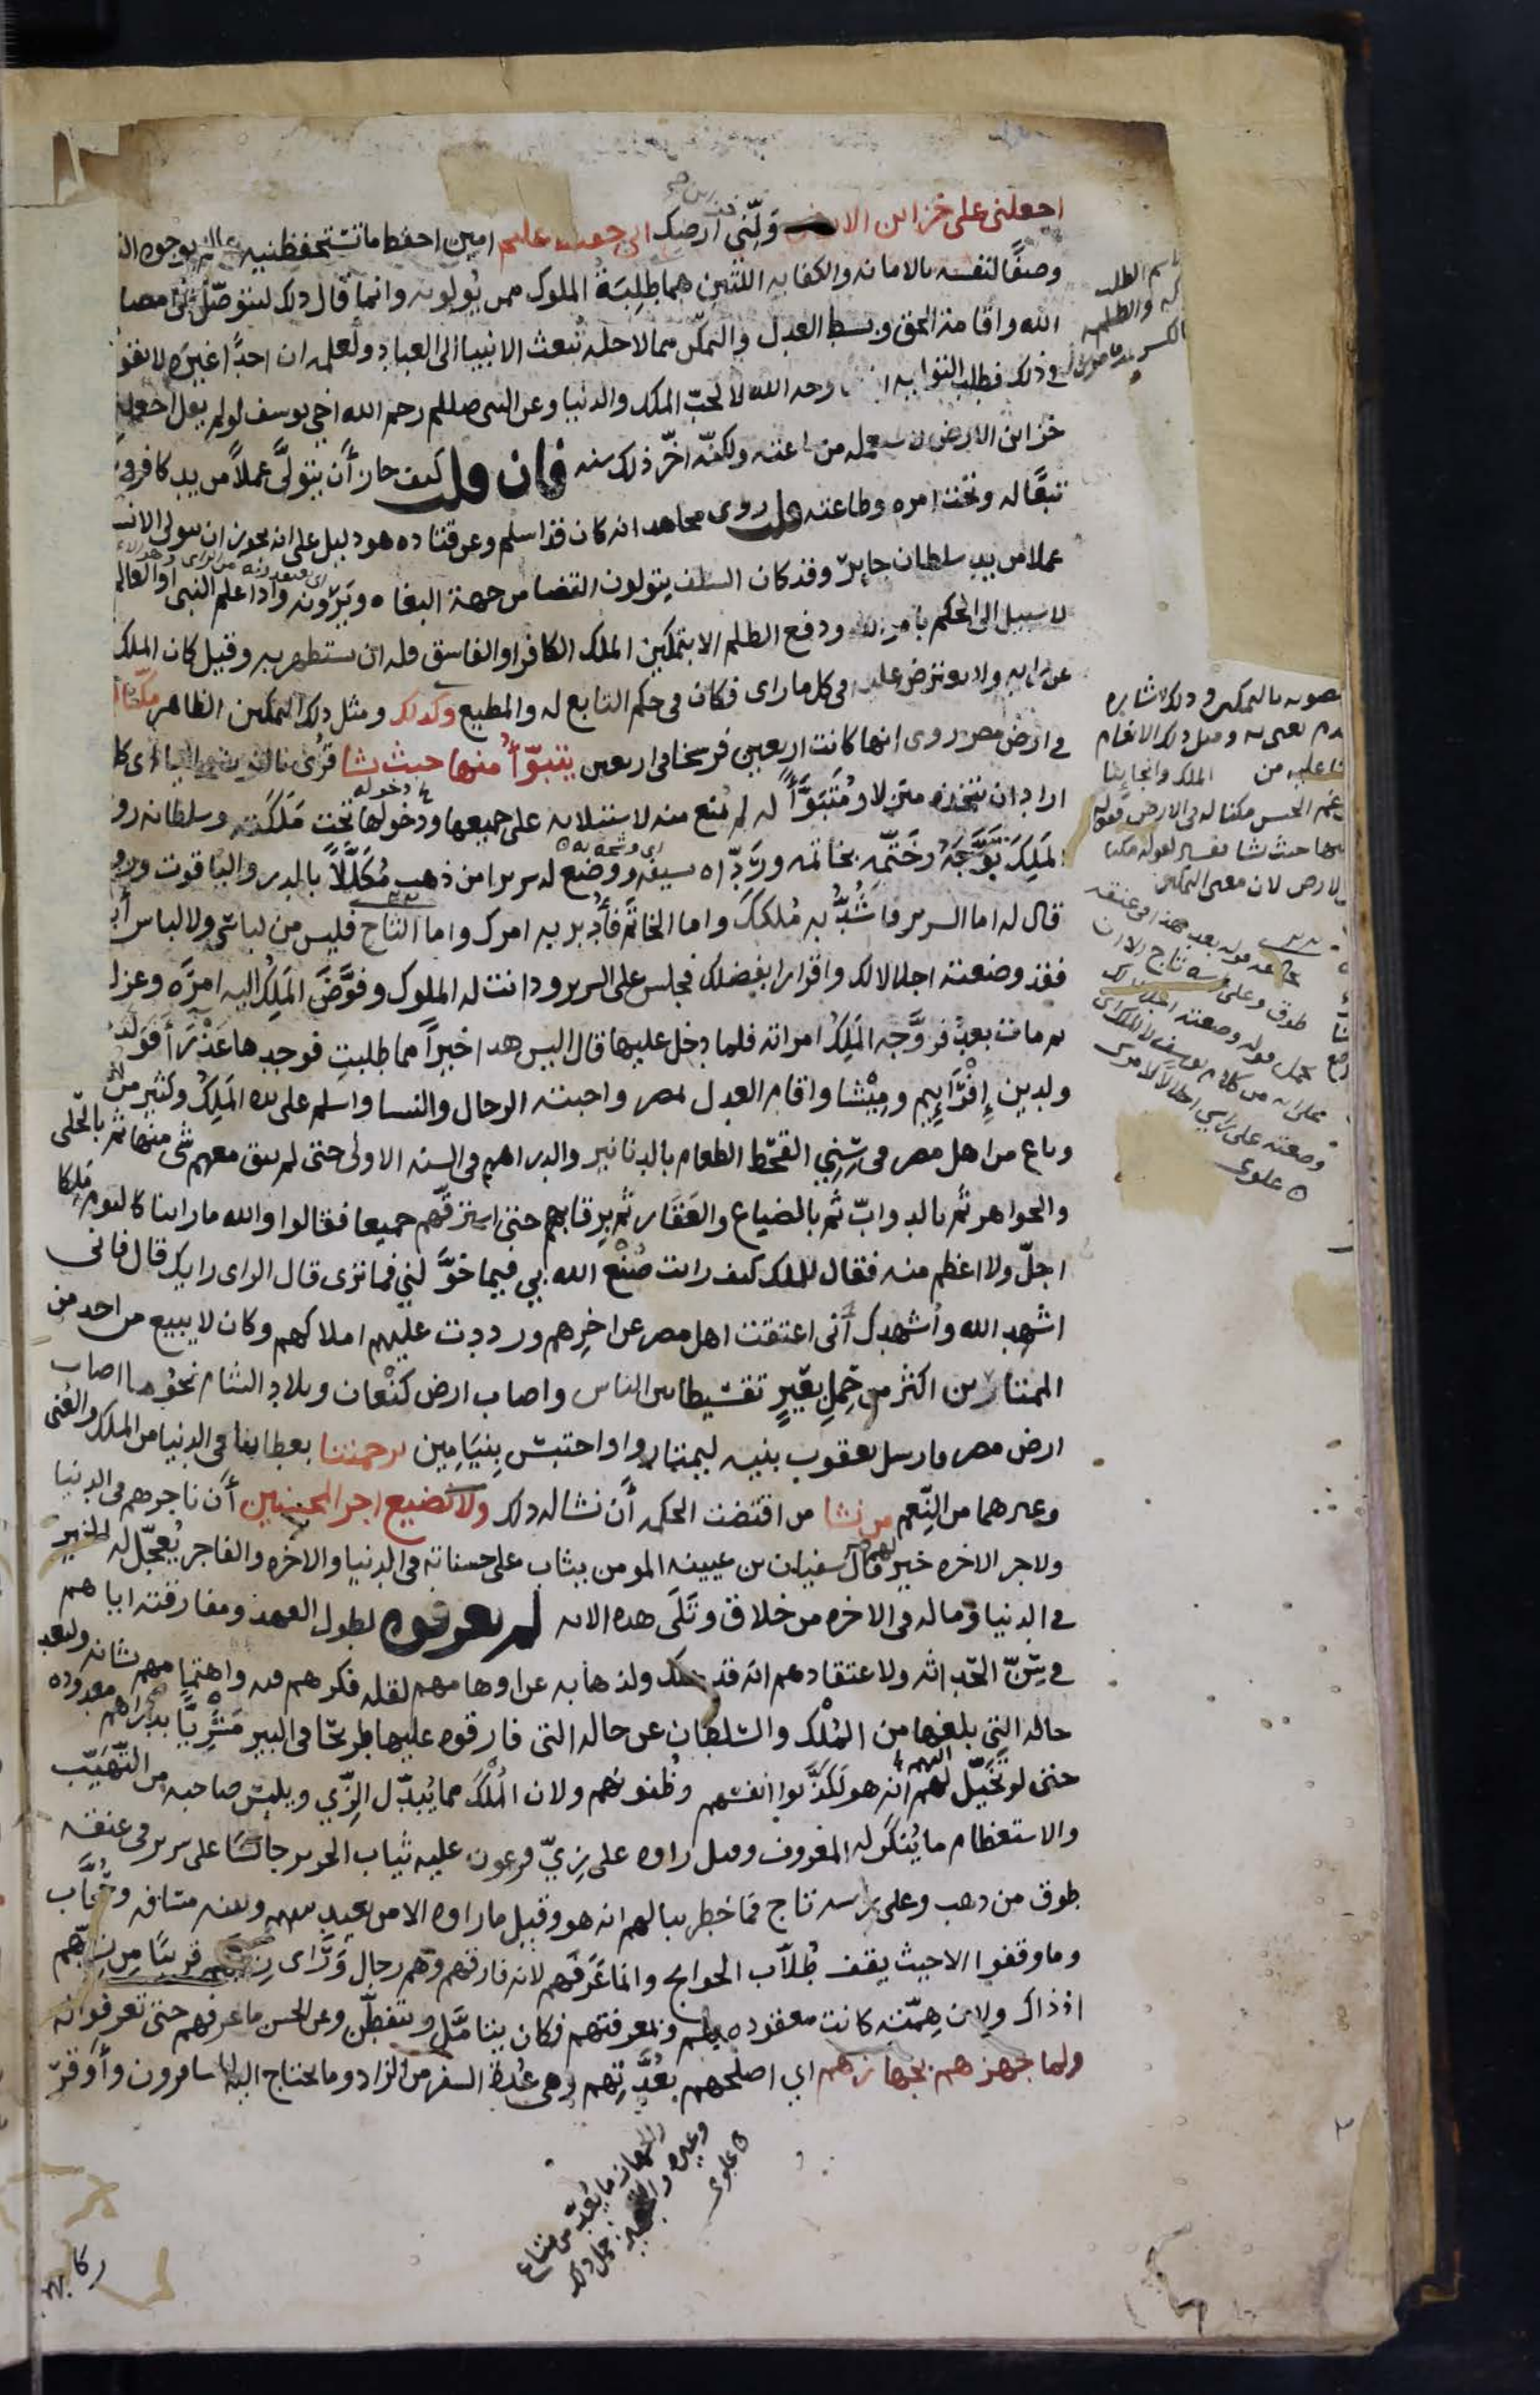 اجعلنى على خزاين الارض وَلِّنى ارضك انى حفيظ عليم امين احفظ ما تستحفظنيه عالم بوجوه الت
وصفًا لنفسه بالامانه والكفايه اللتين هما طِلِبَةُ الملوك ممن يُولونه وانما قال ذلك ليتوصّل الى امضا
الله واقامة الحق وبسط العدل والتمكّن مما لاجله تُبعث الانبيا الى العباد ولعلمه ان احدًا غيرَه لا يقو
فى ذلك فطلب التوليه ابتغا وجه الله لا لحبّ الملك والدنيا وعن النبى صللم رحم الله اخى يوسف لو لم يقل اجعلنى
خزاين الارض لاستعمله من ساعته ولكنّه اخّر ذلك سنه فان قلت كيف جاز أَن يتولَّى عملاً من يد كافر و
تبعًا له وتحت امره وطاعته قلت روى مجاهد انه كان قد اسلم وعن قتاده هو دليل على انه يجوز ان يتولى الانسـ
عملا من يد سلطان جاير وقد كان السلف يتولون القضا من جهة البغاه ويَرَوْنه واذا علم النبى او العالم
لا سبيل الى الحكم بامر الله ودفع الظلم الا بتمكين الملك الكافر او الفاسق فله ان يستظهر به وقيل كان الملك
عن رايه ولا يعترض عليه فى كل ما راى فكان فى حكم التابع له والمطيع وكذلك ومثل ذلك التمكين الظاهر مكّنا
فى ارض مصر روى انها كانت اربعين فرسخا فى اربعين يتبوّأ منها حيث يشا قرى بالنون واليا اى كل
اراد ان يتخذه منزلا ومُتَبَوَّأً له لم يُمنع منه لاستيلائه على جميعها ودخولها تحت مَلَكَته وسلطانه رو
المَلِكَ تَوَّجَهُ وخَتَّمَه بخاتمه وردّاه بسيفه ووضع له سريرا من ذهب مُكَلَّلاً بالدر والياقوت ورو
قال له اما السرير فاشُدُّ به مُلككَ واما الخاتم فأُدبر به امرك واما التاج فليس من لباسى ولا لباس آبا
فقد وضعته اجلالا لك واقرارا بفضلك فجلس على السرير ودانت له الملوك وفوَّضَ المَلِكُ اليه امرَه وعزل
ثم مات بعدُ فزوَّجه المَلِكُ امراته فلما دخل عليها قال اليس هدا خيرًا مما طلبتِ فوجدها عَذْرَآ فَوَلَدت
ولدين إِفْرَآيِيم ومِيْشا واقام العدل بمصر واحبته الرجال والنسا واسلم على يده المَلِكُ وكثير من
وباع من اهل مصر فى سِنِي القحط الطعام بالدنانير والدراهم فى السنه الاولى حتى لم يبق معهم شى منها ثم بالحلى
والجواهر ثم بالدوابّ ثم بالضياع والعَقَار ثم بِرقابهم حتى استرقّهم جميعا فقالوا والله ما راينا كاليوم مَلِكا
اجلّ ولا اعظم منه فقال للملك كيف رايت صُنْعَ الله بي فيما خوَّلني فما ترى قال الراى رايك قال فانى
اشهد الله واُشهدك أنى اعتقت اهل مصر عن اخِرِهم ورددت عليهم املاكهم وكان لا يبيع من احد من
الممتارين اكثر من حِملِ بعيرٍ تقسيطا بين الناس واصاب ارض كَنْعان وبلاد الشام نحوُ ما اصاب
ارض مصر فارسل يعقوب بنيه ليمتاروا واحتبس بِنيَامِين برحمتنا بعطاينا فى الدنيا من الملك والغنى
وغيرهما من النِّعم من نشا من اقتضت الحكمه أن نشا له ذلك ولا نضيع اجر المحسنين أن ناجرهم فى الدنيا
ولاجر الاخره خير لهم قال سفيان بن عيينه المومن يثاب على حسناته فى الدنيا والاخره والفاجر يُعجّل له الخير
فى الدنيا وما له فى الاخره من خلاق وتَلَى هذه الايه لم يعرفوه لطول العهد ومفارقته اياهم
فى سِنّ الحَداثه ولاعتقادهم انه قد هلك ولذهابه عن اوهامهم لقله فكرهم فيه واهتمامهم بشانه ولبعد
حاله التى بلغها من المُلْك والسّلطان عن حاله التى فارقوه عليها طريحًا فى البير مَشْرِيًّا بدراهم معدوده
حتى لو تخيّل لهم انه هو لكذّبوا انفسهم وظُنونهم ولان المُلْكَ مما يُبدّل الزِّي ويلبس صاحبه من التّهيّب
والاستعظام ما يُنكَر له المعروف وقيل راوه على زِيّ فرعون عليه ثياب الحرير جالسًا على سرير فى عنقه
طوق من ذهب وعلى راسه تاج فما خطر ببالهم انه هو وقيل ما راوه الا من بعيد بينهم وبينه مسافه وحُجّاب
وما وقفوا الا حيث يقف طُلّاب الحوايج وانما عَرَفهم لانه فارقهم وهم رجال وَرَاى زيهم قريبًا من زيّهم
اذ ذاك ولان هِمّته كانت معقوده بهم وبمعرفتهم فكان يتامّل ويتفطّن وعن الحسن ما عرفهم حتى تعرفوا له
ولما جهزهم بجهازهم اي اصلحهم بعُدَّتهم وهى عُدة السفر من الزاد وما يحتاج اليه المسافرون وأَوقرَ
ركا
الجهاز ما يُعدّ من متاع
وغيره والتجهيز حمل ذلك
علوى
اسم الطلب
عند قوله بعد هذا فى عنقه
طوق وعلى راسه تاج
يحمل قوله وضعته اجلالا لك
على انه من كلام يوسف
وضعته على راسي اجلالا لامرك
علوى